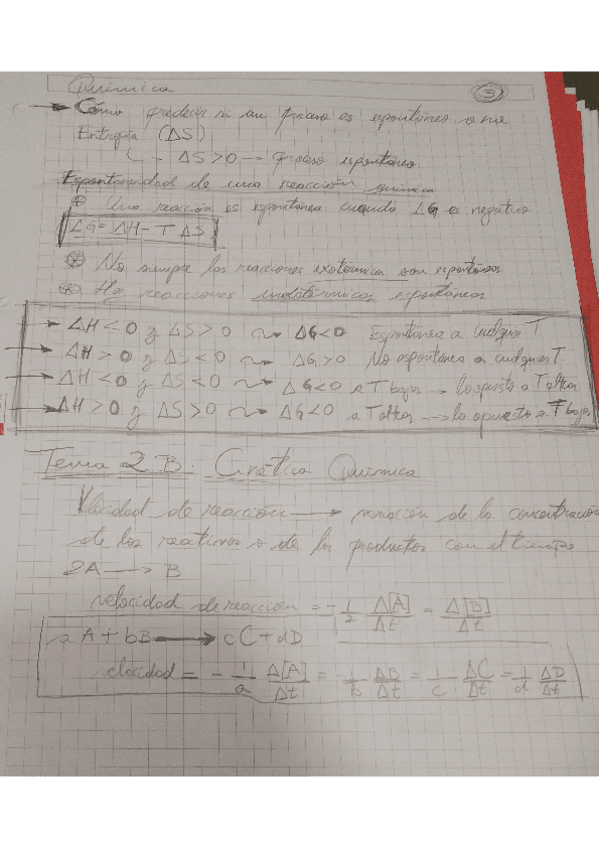 Química 3
→ Cómo predecir si un proceso es espontáneo o no
Entropía (ΔS)
- ΔS>0 → proceso espontáneo
Espontaneidad de una reacción química
Una reacción es espontánea cuando ΔG es negativo
ΔG= ΔH- T ΔS
No siempre las reacciones exotérmica son espontáneas
Ha reacciones endotérmicas espontáneas
→ ΔH<0 y ΔS>0 ~→ ΔG<0 Espontánea a cualquier T.
→ ΔH>0 y ΔS<0 ~→ ΔG>0 No espontánea a cualquier T.
→ ΔH<0 y ΔS<0 ~→ ΔG<0 a T bajas → lo opuesto a T altas
→ ΔH>0 y ΔS>0 ~→ ΔG<0 a T altas → lo opuesto a T bajas
Tema 2 B: Cinética Química
Velocidad de reacción → variación de la concentración
de los reactivos o de los productos con el tiempo
2A → B
velocidad de reacción = - 1/2 Δ[A]/Δt = Δ[B]/Δt
aA + bB → cC + dD
velocidad = - 1/a Δ[A]/Δt = - 1/b ΔB/Δt = 1/c ΔC/Δt = 1/d ΔD/Δt